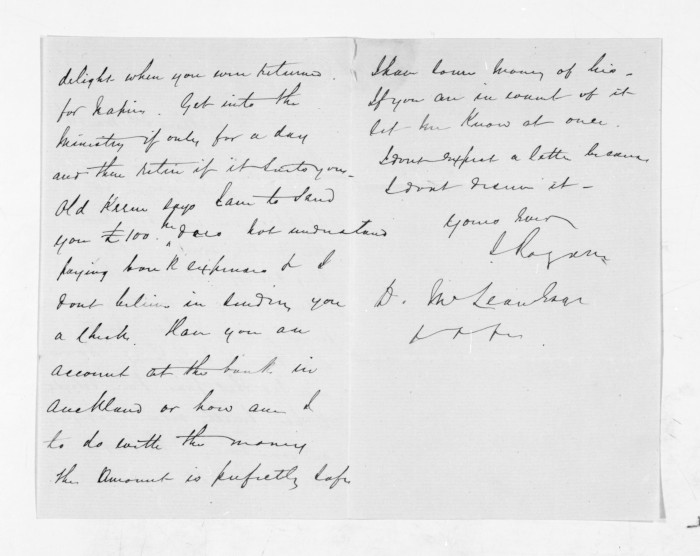 delight when you were returned
for Napier. Get into the
Ministry if only for a day
and then retire if it suits you.
Old Kerei says I am to send
you £100. he does not understand
paying bank expenses & I
dont believe in sending you
a check. Have you an
account at the bank in
Auckland or how am I
to do with the money
the amount is perfectly safe
I have some money of his -
If you are in want of it
let me know at once.
I dont expect a letter because
I dont deserve it -
Yours ever
J Rogan
D. McLean Esqr